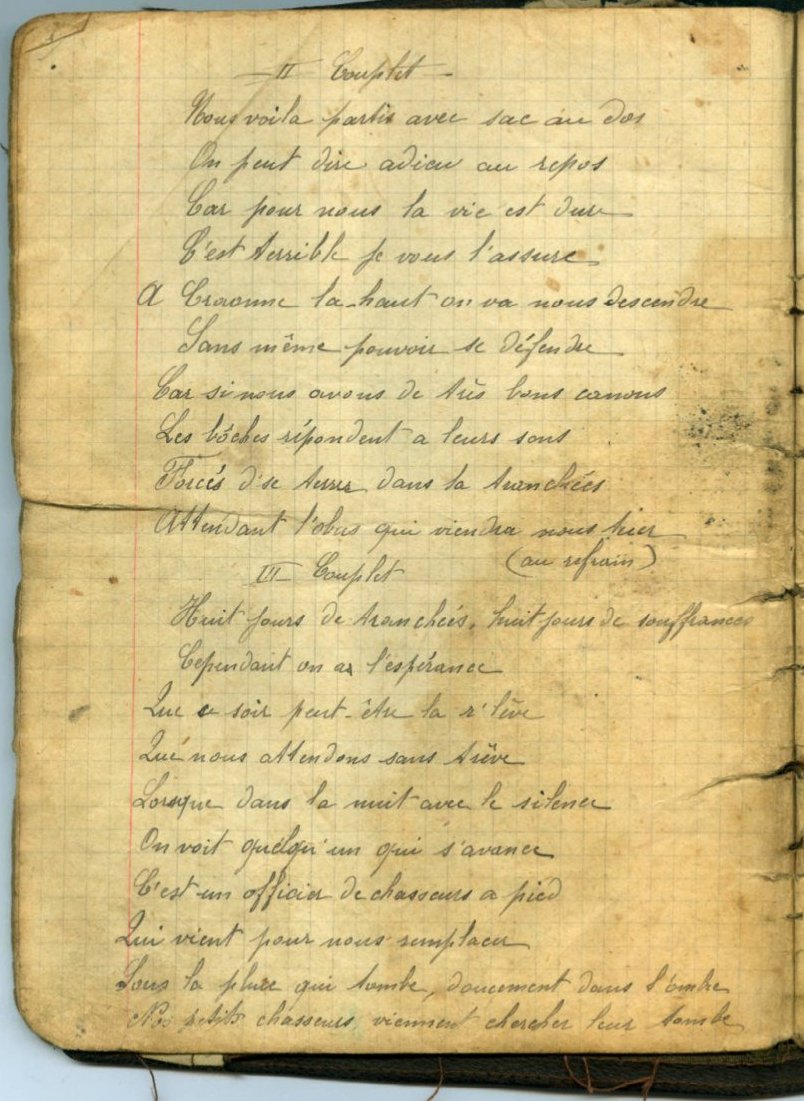 II Couplet
Nous voila partis avec sac au dos
On peut dire adieu au repos
Car pour nous la vie est dure
C'est terrible je vous l'assure
A Craonne la-haut on va nous descendre
Sans même pouvoir se défendre
Car si nous avons de très bons canons
Les bôches répondent a leurs sons
Forcés d'se terrer dans la tranchées
Attendant l'obus qui viendra nous tuer
(au refrain)
III Couplet
Huit jours de tranchées, huit jours de souffrances
Cependant on a l'espérance
Que ce soir peut-être la r'lève
Que nous attendons sans trêve
Lorsque dans la nuit avec le silence
On voit quelqu'un qui s'avance
C'est un officier de chasseurs a pied
Qui vient pour nous remplacer
Sous la pluie qui tombe, doucement dans l'ombre
Nos petits chasseurs viennent chercher leur tombe